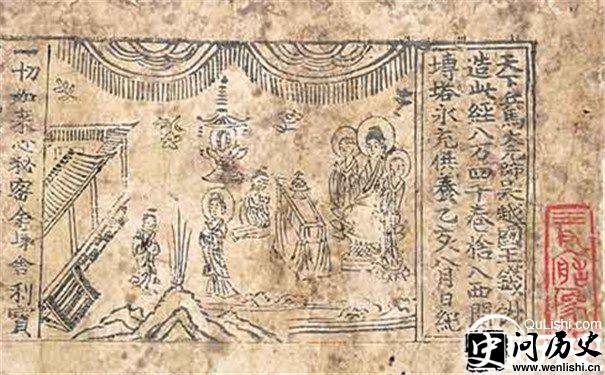 天下兵馬大元帥吳越國王錢俶
造此經八万四千卷捨入西關
塼塔永充供養乙亥八月日紀
一切如來心秘密全身舍利寶
QuLishi.com
问历史
www.wenlishi.cn